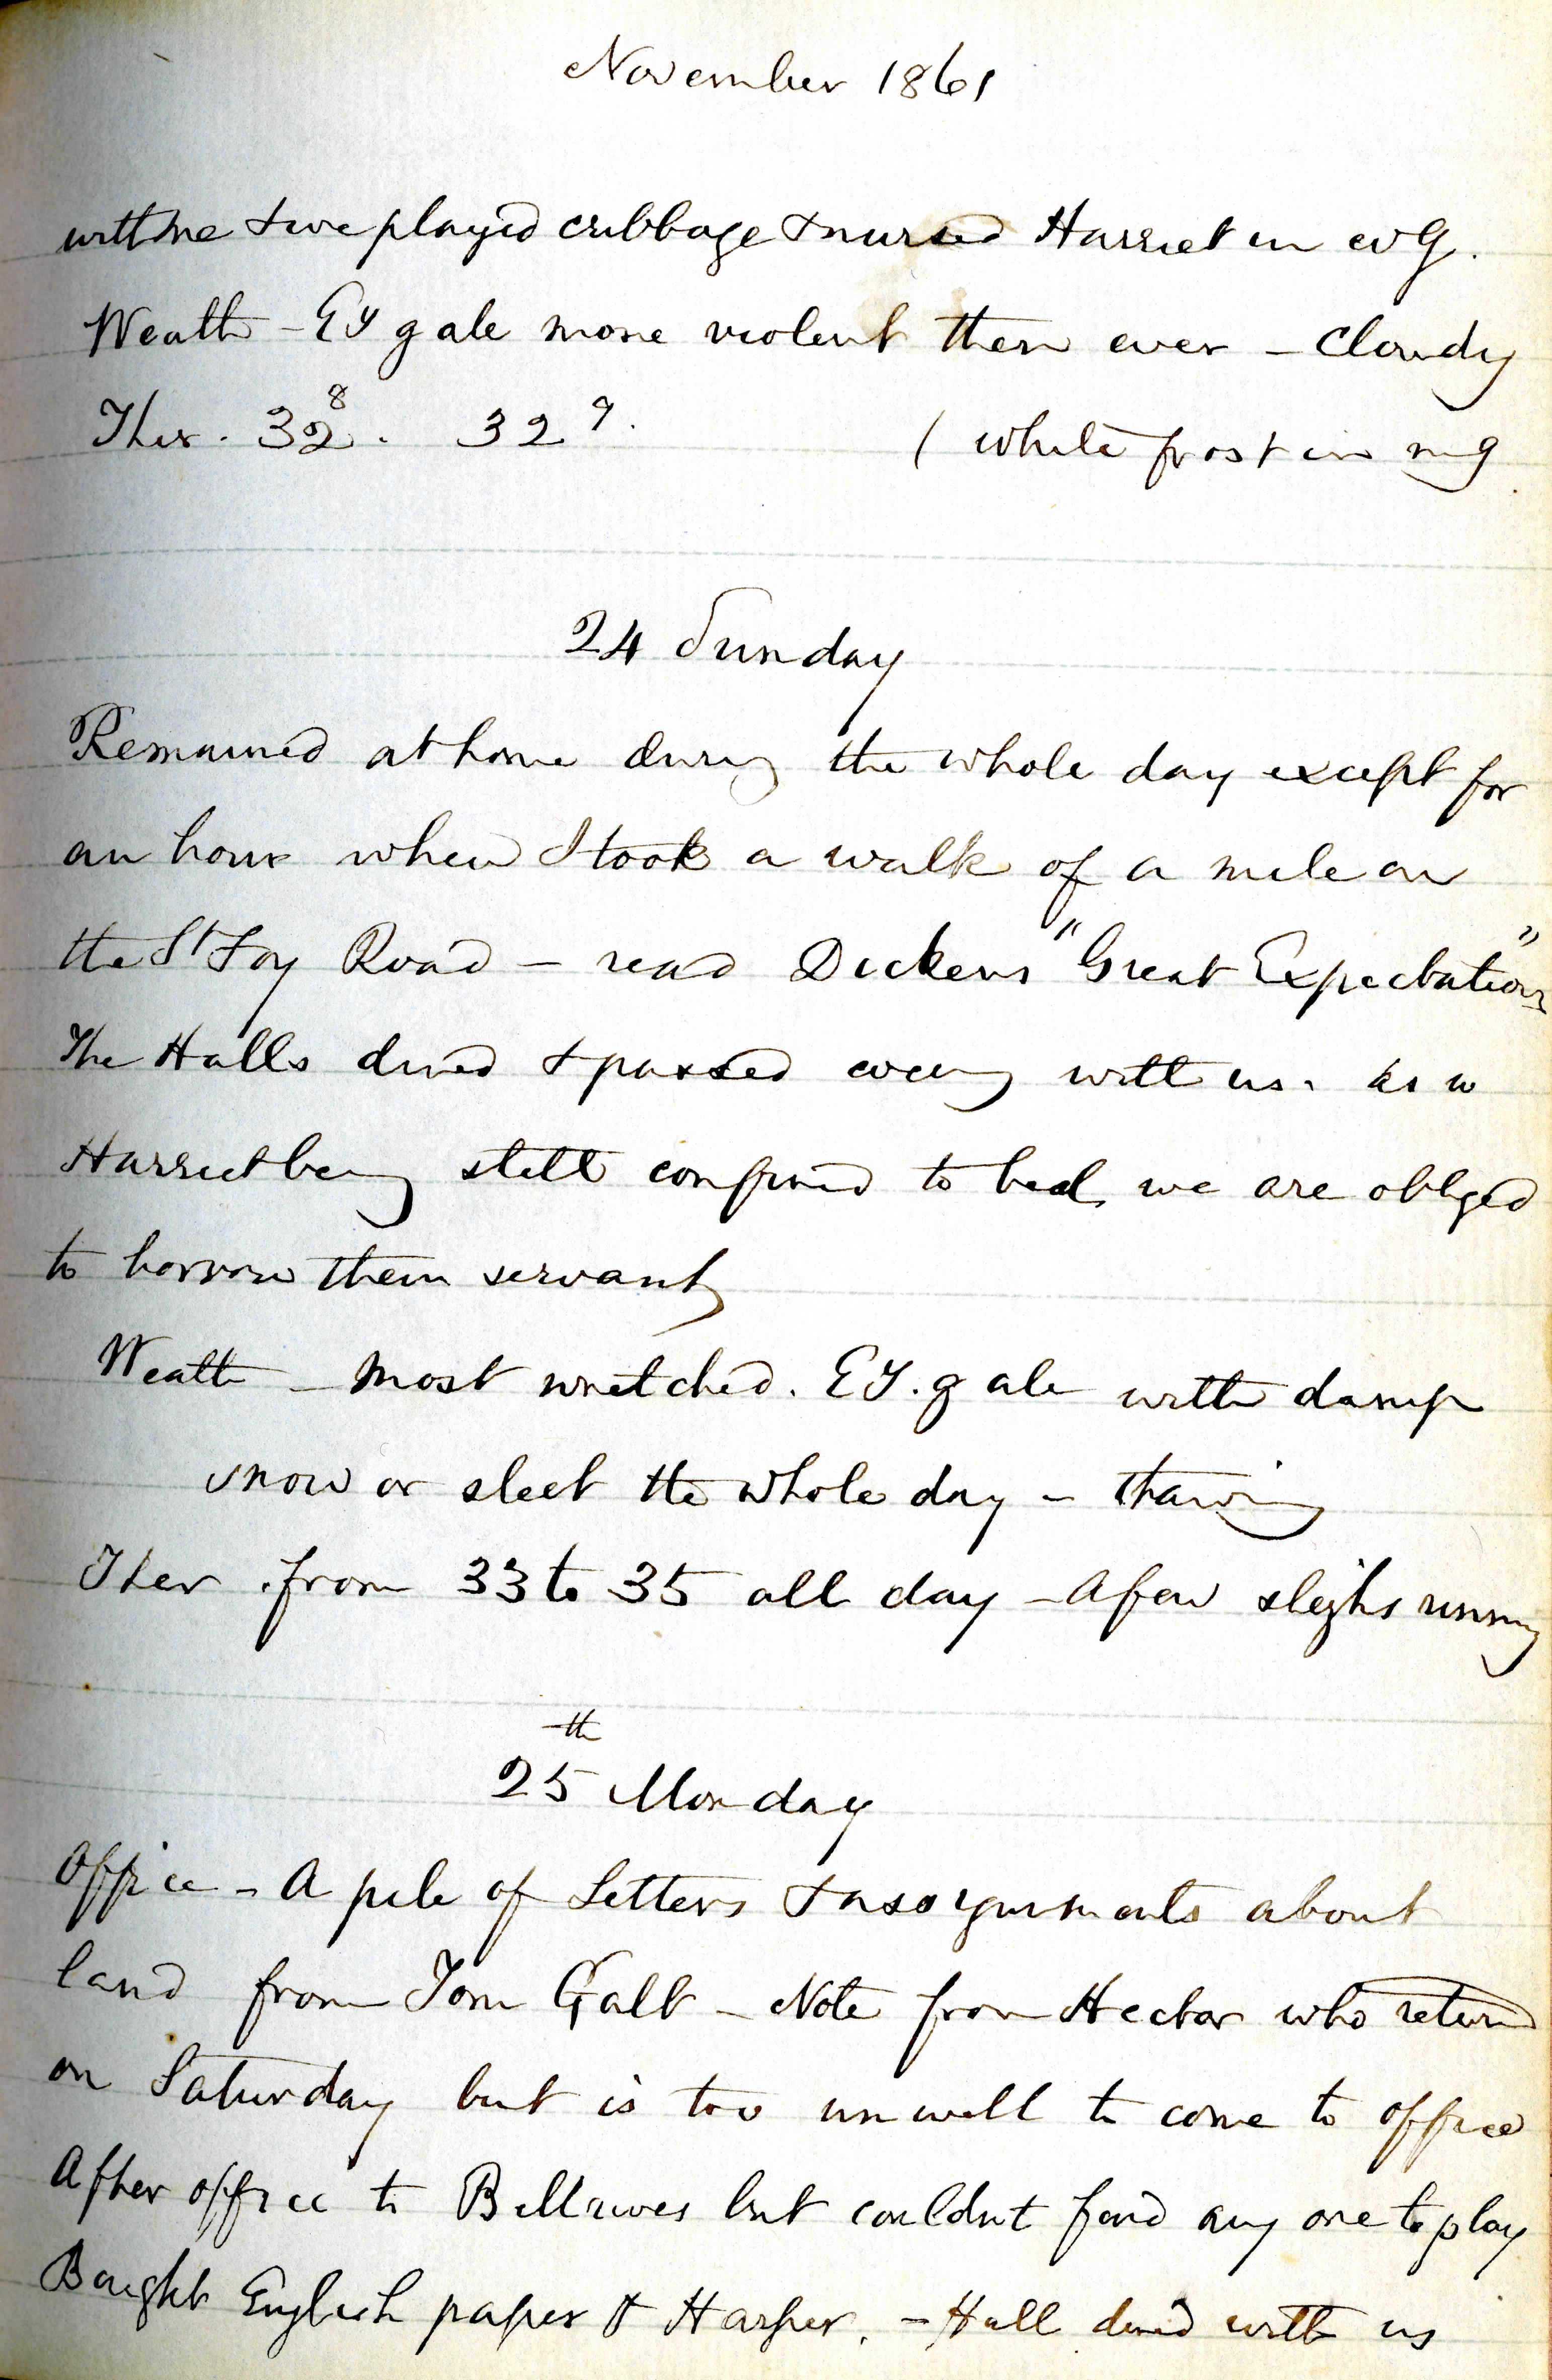 November 1861
with me & we played cribbage & nursed Harriet in evg.
Weath - Ey gale more violent then ever - Cloudy
Ther. 32 8. 32 9. ( White frost in mg
24 Sunday
Remained at home during the whole day except for
an hour when I took a walk of a mile on
the St Foy Road - read Dickens "Great Expectations"
The Halls dined & passed eveng with us. as
Harriet being still confined to bed we are obliged
to borrow their servant
Weath - Most wretched. Ey. gale with damp
snow or sleet the whole day - thawing
Ther. from 33 to 35 all day - A few sleighs running
25th Monday
Office - A pile of Letters & assignments about
land from Tom Galt - Note from Hector who returnd
on Saturday but is too unwell to come to office
After office to Billiards but couldn't find any one to play
Bought English paper & Harper. - Hall dined with us